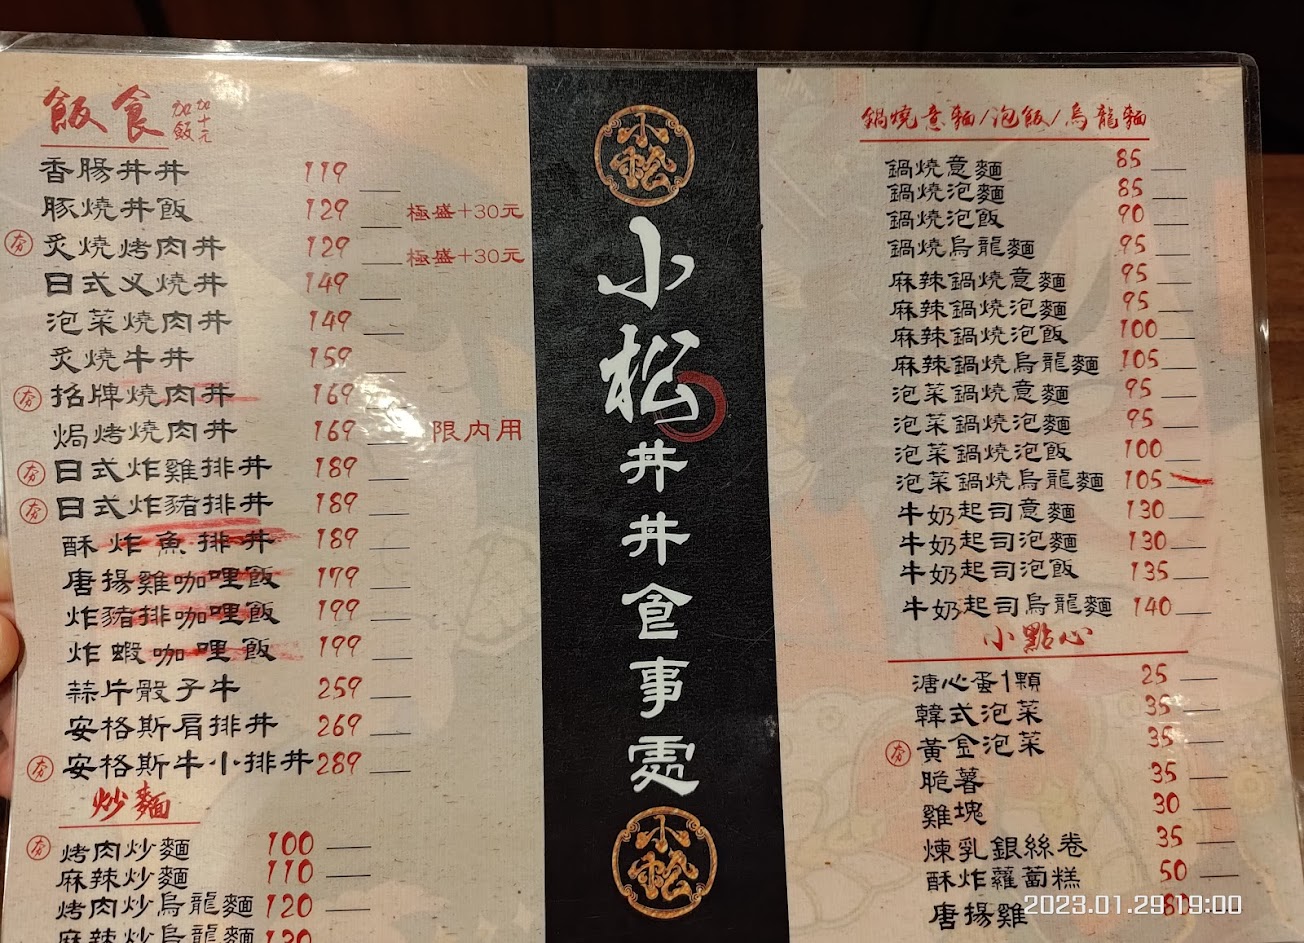 飯食 加飯加十元
香腸丼丼 119
豚燒丼飯 129 極盛+30元
夯 炙燒烤肉丼 129 極盛+30元
日式叉燒丼 149
泡菜燒肉丼 149
炙燒牛丼 159
夯 招牌燒肉丼 169
焗烤燒肉丼 169 限內用
夯 日式炸雞排丼 189
夯 日式炸豬排丼 189
酥炸魚排丼 189
唐揚雞咖哩飯 179
炸豬排咖哩飯 199
炸蝦咖哩飯 199
蒜片骰子牛 259
安格斯肩排丼 269
夯 安格斯牛小排丼 289
炒麵
夯 烤肉炒麵 100
麻辣炒麵 110
烤肉炒烏龍麵 120
麻辣炒烏龍麵 130
小松
小松丼丼食事處
小松
鍋燒意麵/泡飯/烏龍麵
鍋燒意麵 85
鍋燒泡麵 85
鍋燒泡飯 90
鍋燒烏龍麵 95
麻辣鍋燒意麵 95
麻辣鍋燒泡麵 95
麻辣鍋燒泡飯 100
麻辣鍋燒烏龍麵 105
泡菜鍋燒意麵 95
泡菜鍋燒泡麵 95
泡菜鍋燒泡飯 100
泡菜鍋燒烏龍麵 105
牛奶起司意麵 130
牛奶起司泡麵 130
牛奶起司泡飯 135
牛奶起司烏龍麵 140
小點心
溏心蛋1顆 25
韓式泡菜 35
夯 黃金泡菜 35
脆薯 35
雞塊 30
煉乳銀絲卷 35
酥炸蘿蔔糕 50
唐揚雞 80
2023.01.29 19:00